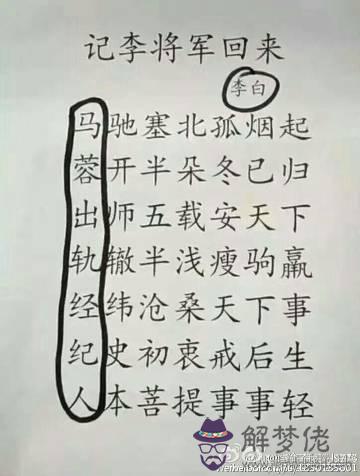 记李将军回来
李白
马驰塞北孤烟起
蓉开半朵冬已归
出师五载安天下
轨辙半浅瘦驹羸
经纬沧桑天下事
纪史初衷戒后生
人本菩提事事轻
解梦佬